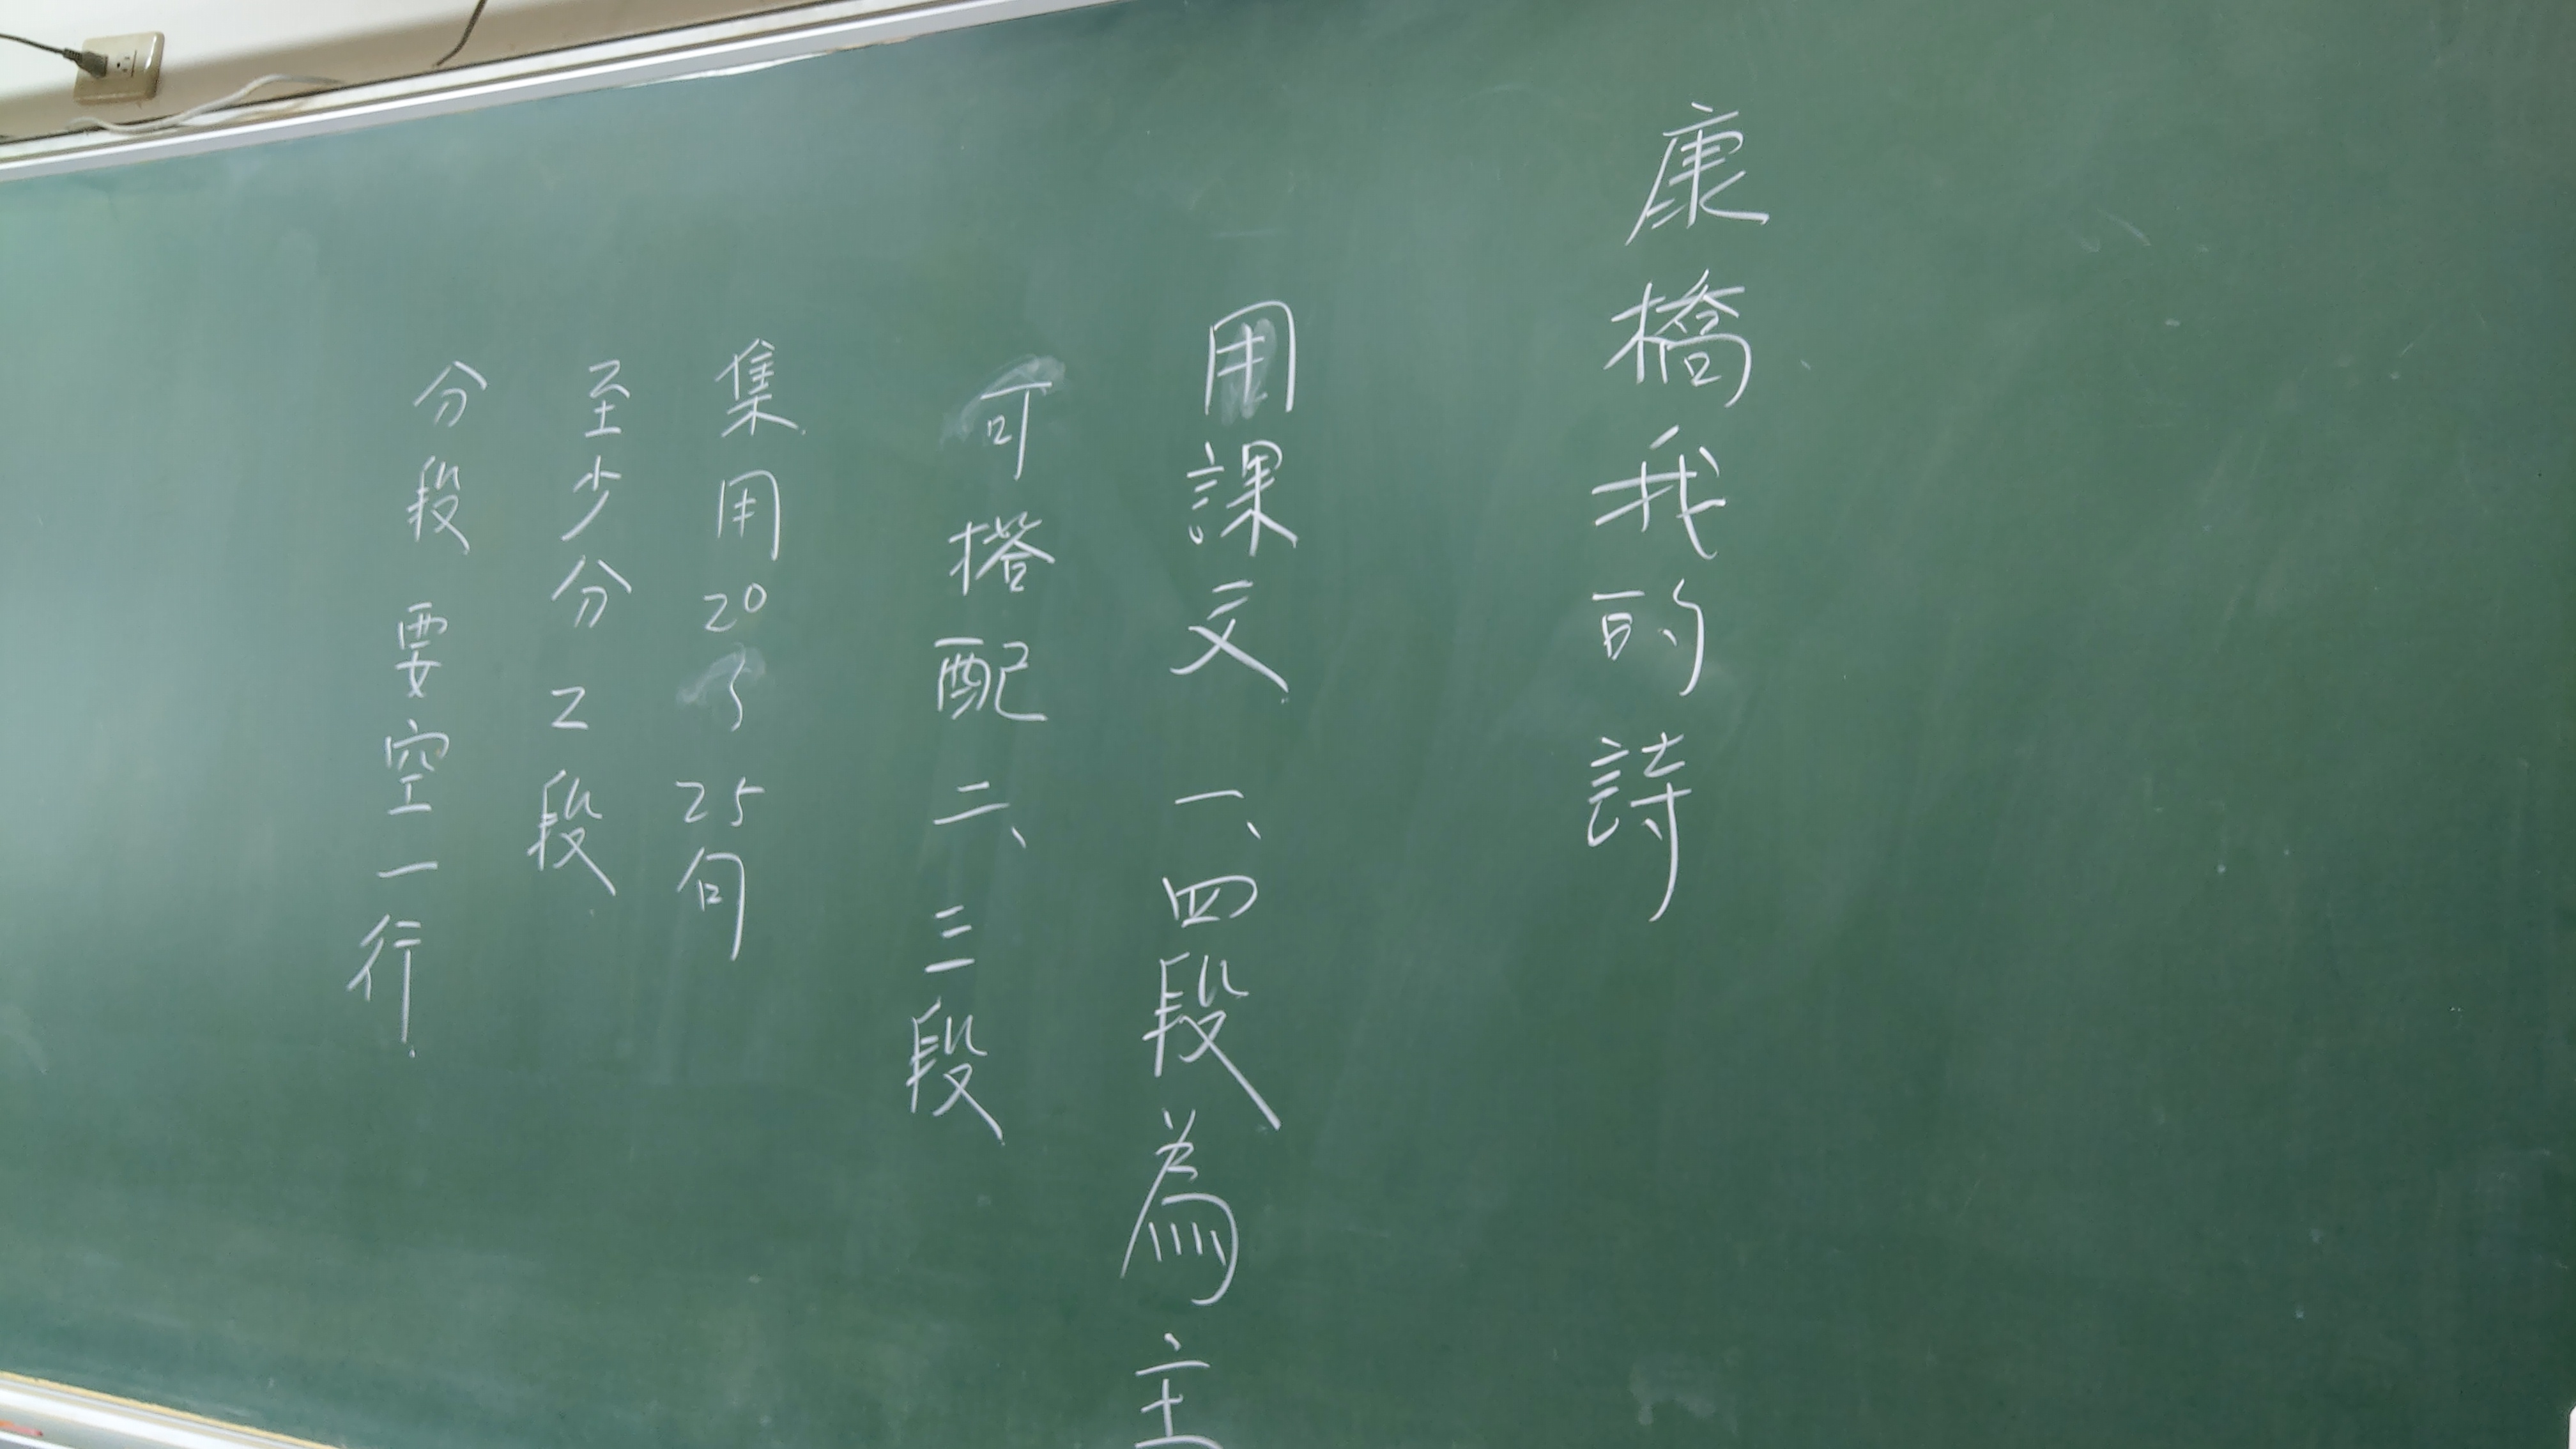 康橋我的詩
用課文一、四段為主
可搭配二、三段
集用20~25句
至少分2段
分段要空一行